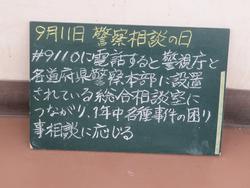 9月11日 警察相談の日
#9110に電話すると警視庁と
各道府県警察本部に設置
されている総合相談室に
つながり、1年中各種事件の困り
事相談に応じる